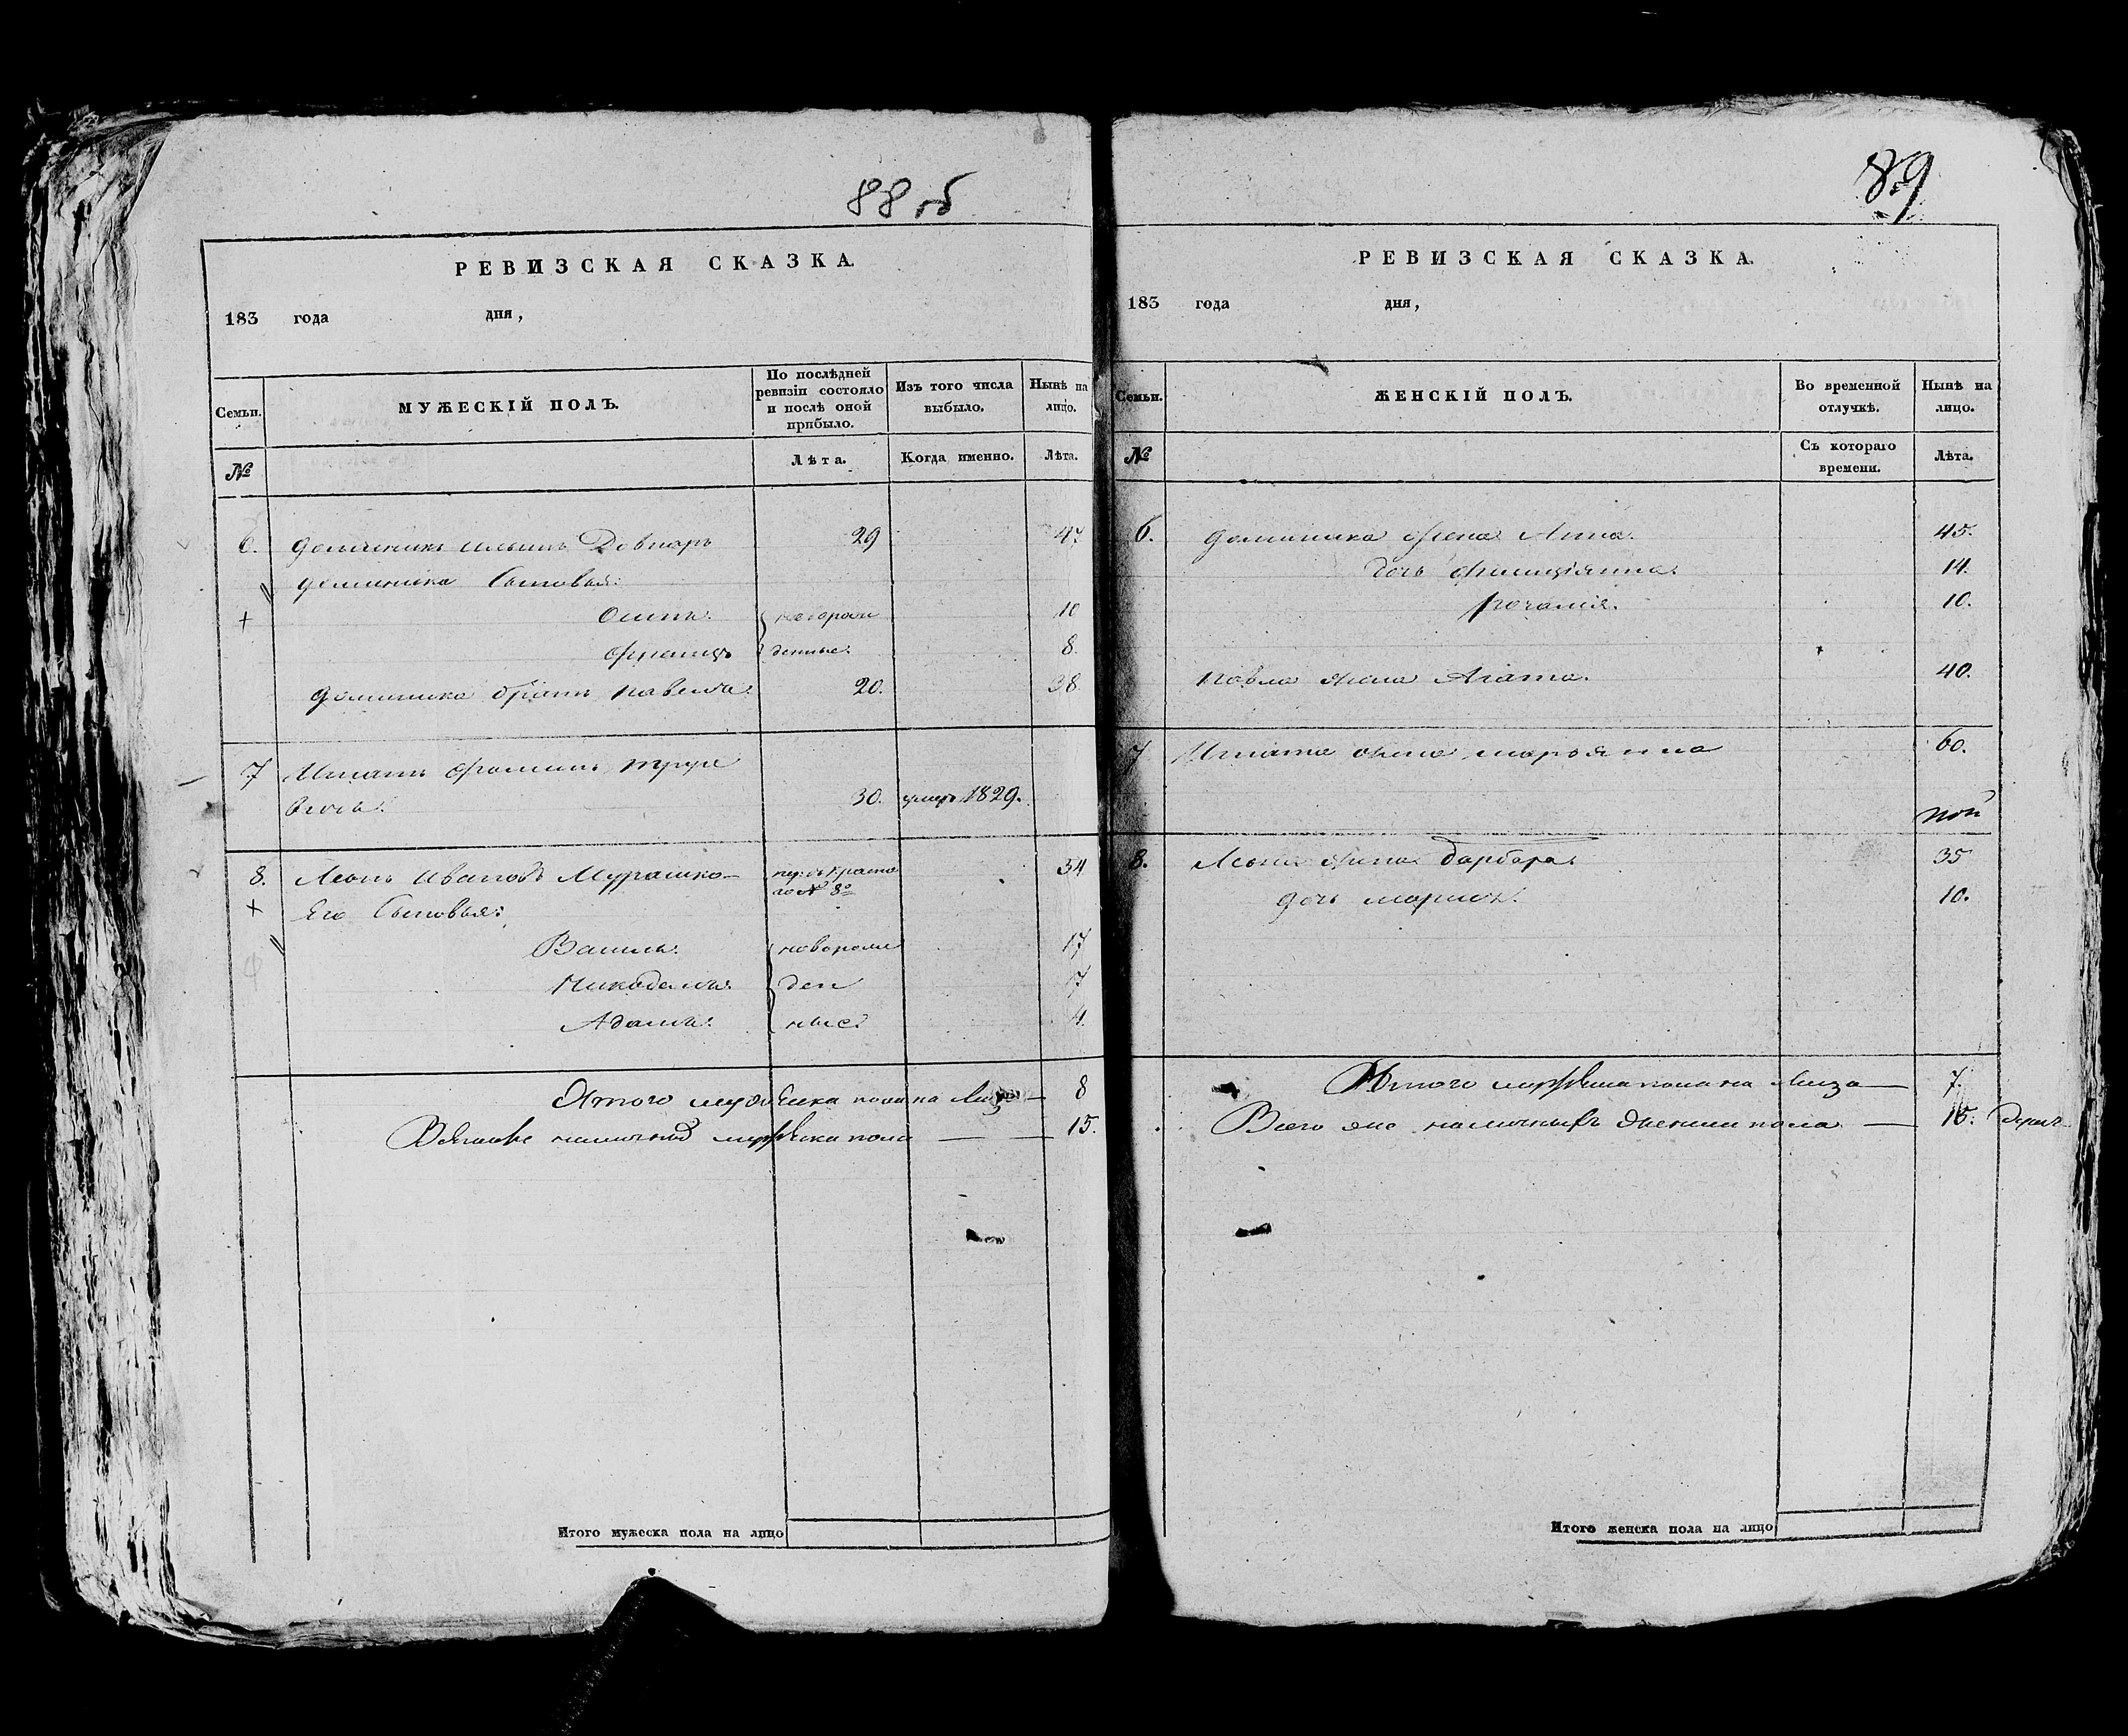 88 об
РЕВИЗСКАЯ СКАЗКА.
183 года дня,
Семьи. МУЖЕСКІЙ ПОЛЪ. По послѣдней ревизіи состояло и послѣ оной прибыло. Изъ того числа выбыло. Нынѣ на лицо.
№ Лѣта. Когда именно. Лѣта.
6. Доминикъ Ильинъ Довнаръ 29 47
Доминика Сыновья:
Осипъ. новорож 10
Францъ денные. 8.
Доминика братъ Павелъ 20. 38.
7 Игнатъ Фоминъ
вичь. 30. умеръ 1829.
8. Леонъ Ивановъ Мурашко 34
№ 8º
Его Сыновья:
Василь. новорож 17
Никодимъ. ден 7
Адамъ. ные. 4.
Итого мужеска пола на Лицо — 8
наличныхъ мужеска пола — 15.
89
РЕВИЗСКАЯ СКАЗКА.
183 года дня,
Семьи. ЖЕНСКІЙ ПОЛЪ. Во временной отлучкѣ. Нынѣ на лицо.
№ Съ котораго времени. Лѣта.
6. Доминика жена Анна. 45.
Дочь Францишка. 14.
Розалія. 10.
Павла жена Агата. 40.
7 Игната жена Марьянна 60.
8. Леона жена Барбара 35
дочь 10.
Итого пола на Лицо — 7.
Всего же наличныхъ женска пола — 15.
Итого мужеска пола на лицо
Итого женска пола на лицо